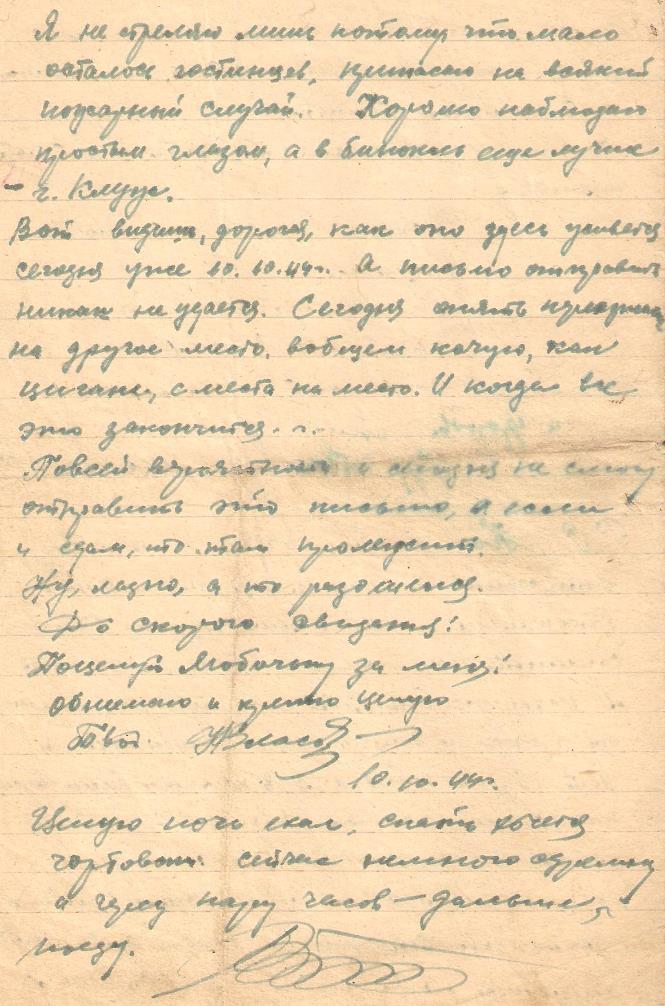 Я не стреляю лишь потому что мало
осталось гостинцев, припасаю на всякий
пожарный случай. Хорошо наблюдаю
простым глазом, а в бинокль еще лучше
г. Клуж.
Вот видишь, дорогая, как оно здесь
сегодня уже 10.10.44г. А письмо отправить
никак не удается. Сегодня опять
на другое место. вобщем кочую, как
цигане, с места на место. И когда все
это закончится...
Повсей вероятности и сегодня не смогу
отправить это письмо, а если
и сдам, то там
Ну, ладно, а то разошелся.
До скорого свидания!
Поцелуй Любочку за меня!
обнимаю и крепко целую
Твой
10.10.44г.
Целую ночь ехал, спать хочется
чортовски сейчас немного
а через пару часов — дальше
поеду.